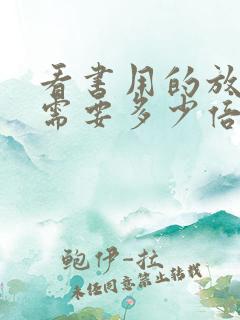 看书用的放
需要多少倍
鲍伊-拉
未经同意禁止转载